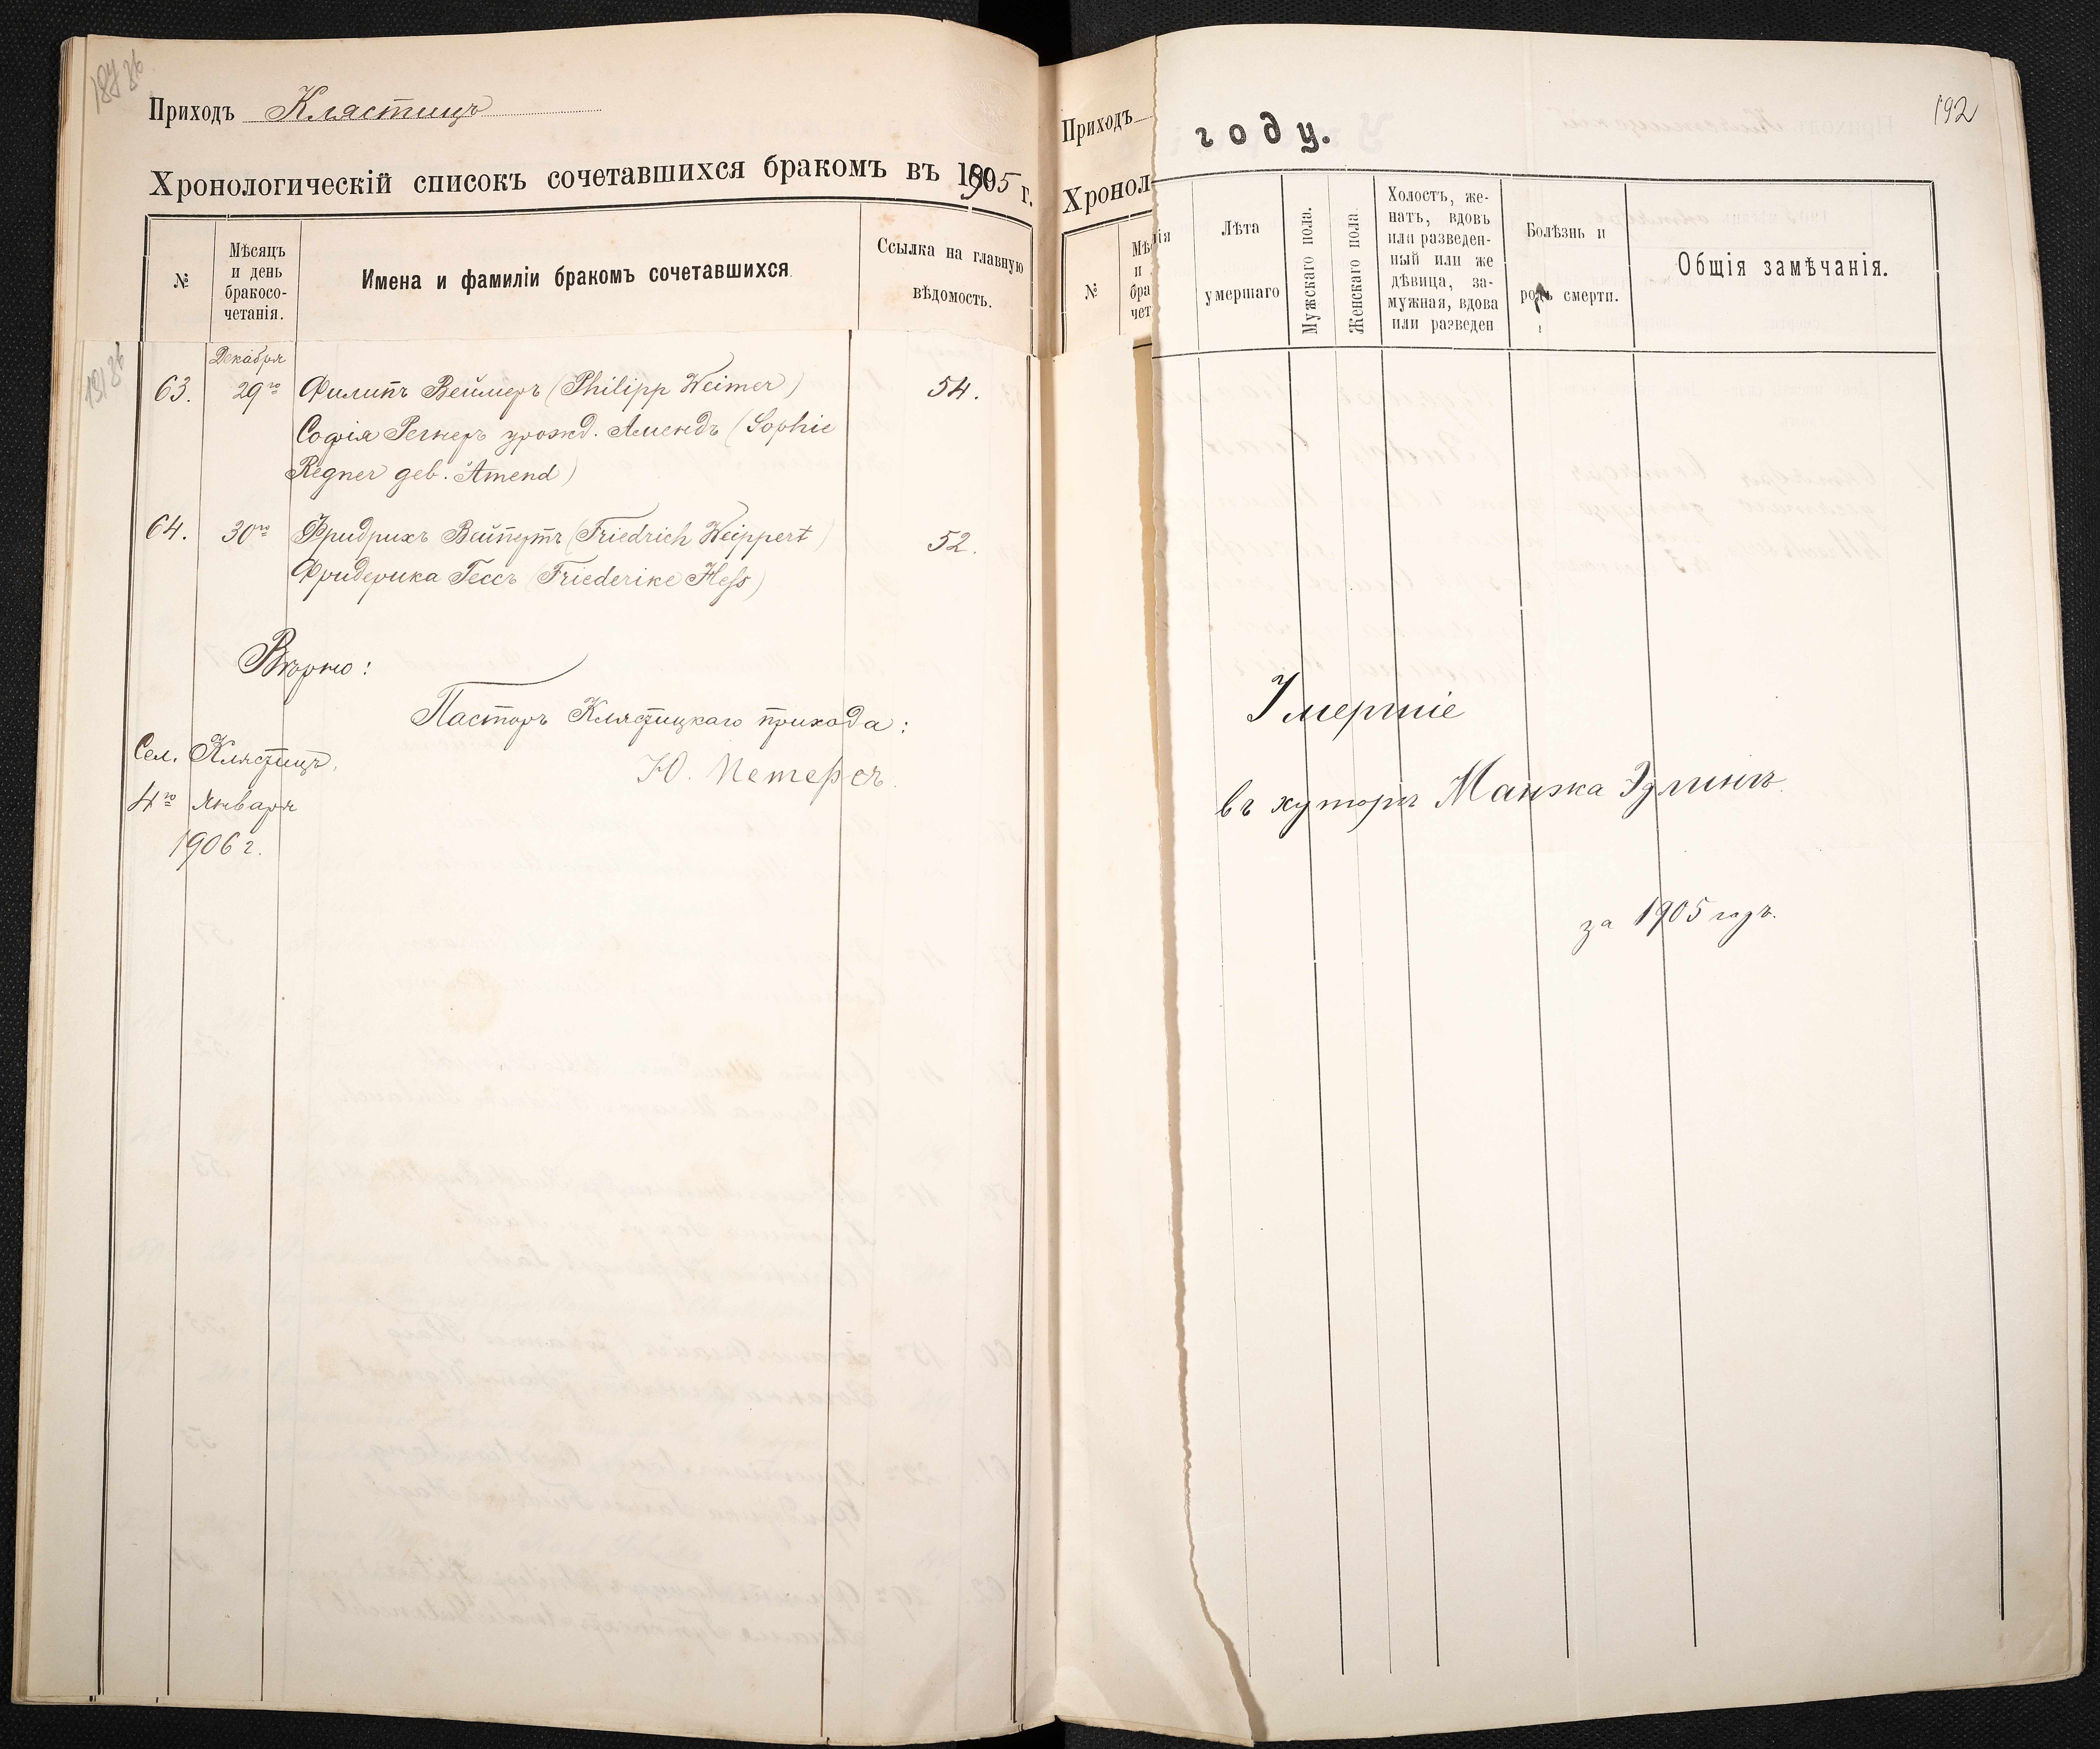 Приходъ Клястицъ
Хронологическій списокъ сочетавшихся бракомъ въ 1905 г.
№
Мѣсяцъ
и день
бракосо-
четанія.
Имена и фамиліи бракомъ сочетавшихся
Ссылка на главную
вѣдомость.
Декабря
63. 29го Филипъ Веймеръ (Philipp Weimer) 54.
Софія Регнеръ урожд. Амендъ (Sophie
Regner geb. Amend)
64. 30го Фридрихъ Вейпертъ (Friedrich Weippert) 52.
Фридерика Гессъ (Friederike Heß)
Вѣрно:
Пасторъ Клястицкаго прихода:
Ю. Петерсъ.
Сел. Клястицъ,
4го Января
1906 г.
Приходъ
Хронол
№
Мѣс
и
бра
чет
192
году.
ія
Лѣта
умершаго
Мужскаго пола.
Женскаго пола
Холостъ, же-
натъ, вдовъ
или разведен-
ный или же
дѣвица, за-
мужная, вдова
или разведен
Болѣзнь и
родъ смерти.
Общія замѣчанія.
Умершіе
въ хуторѣ Манжа
за 1905 годъ.